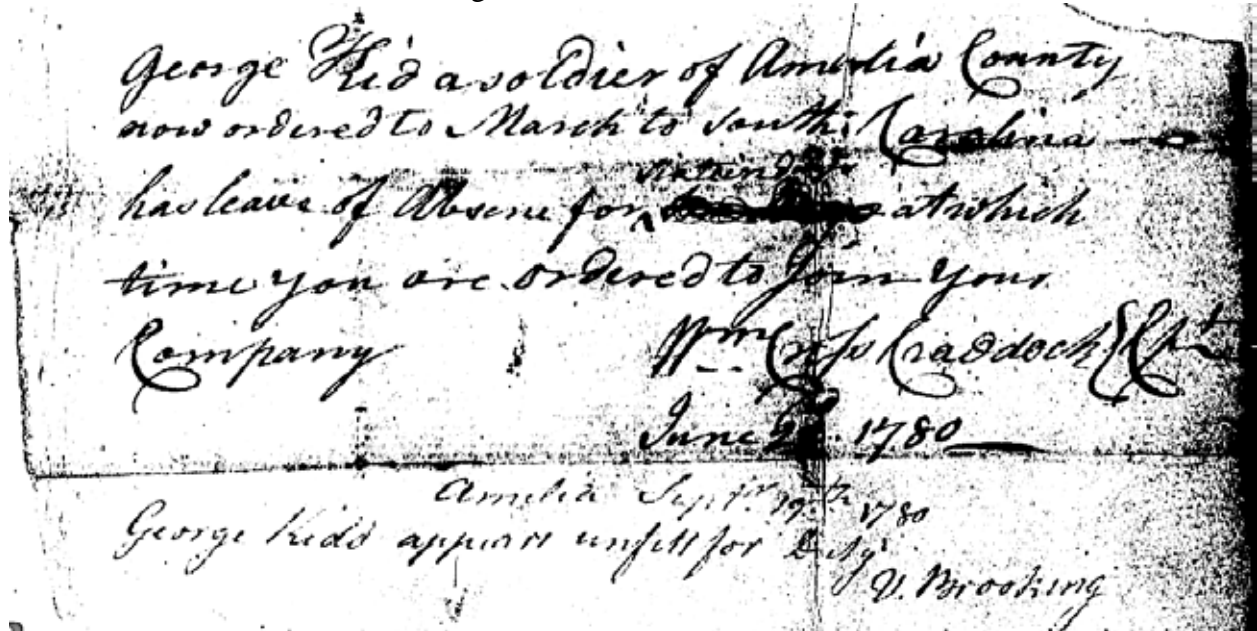 George Kid a soldier of Amelia County
now ordered to March to South Carolina
has leave of Absene for at which
time you are ordered to Join Your
Company Wm Cross Craddock Cpt
June 1780
Amelia Septr. 19th 1780
George Kidd appears unfitt for Duty
V. Brooking